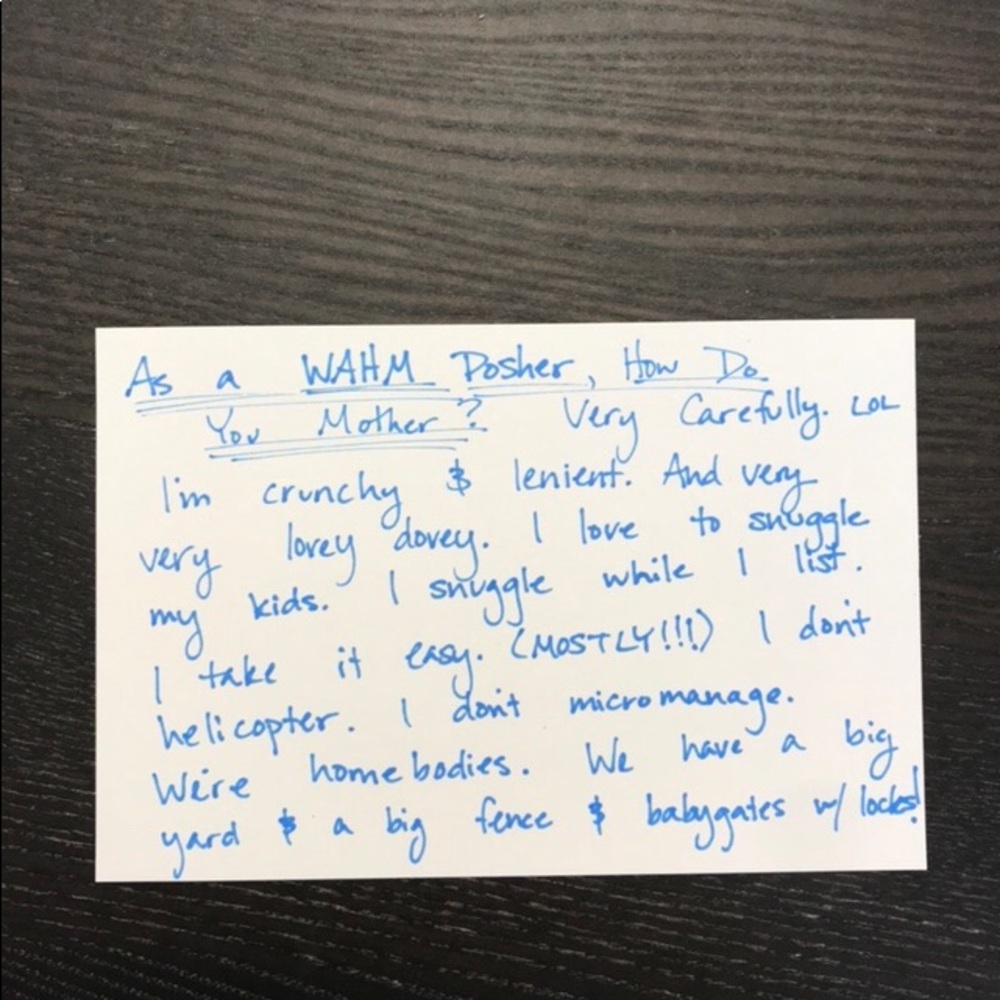 As a WAHM Posher, How Do
You Mother? Very Carefully. LOL
I'm crunchy & lenient. And very
very lovey dovey. I love to snuggle
my kids. I snuggle while I list.
I take it easy. (MOSTLY!!!) I don't
helicopter. I don't micromanage.
We're homebodies. We have a big
yard & a big fence & babygates w/ locks!